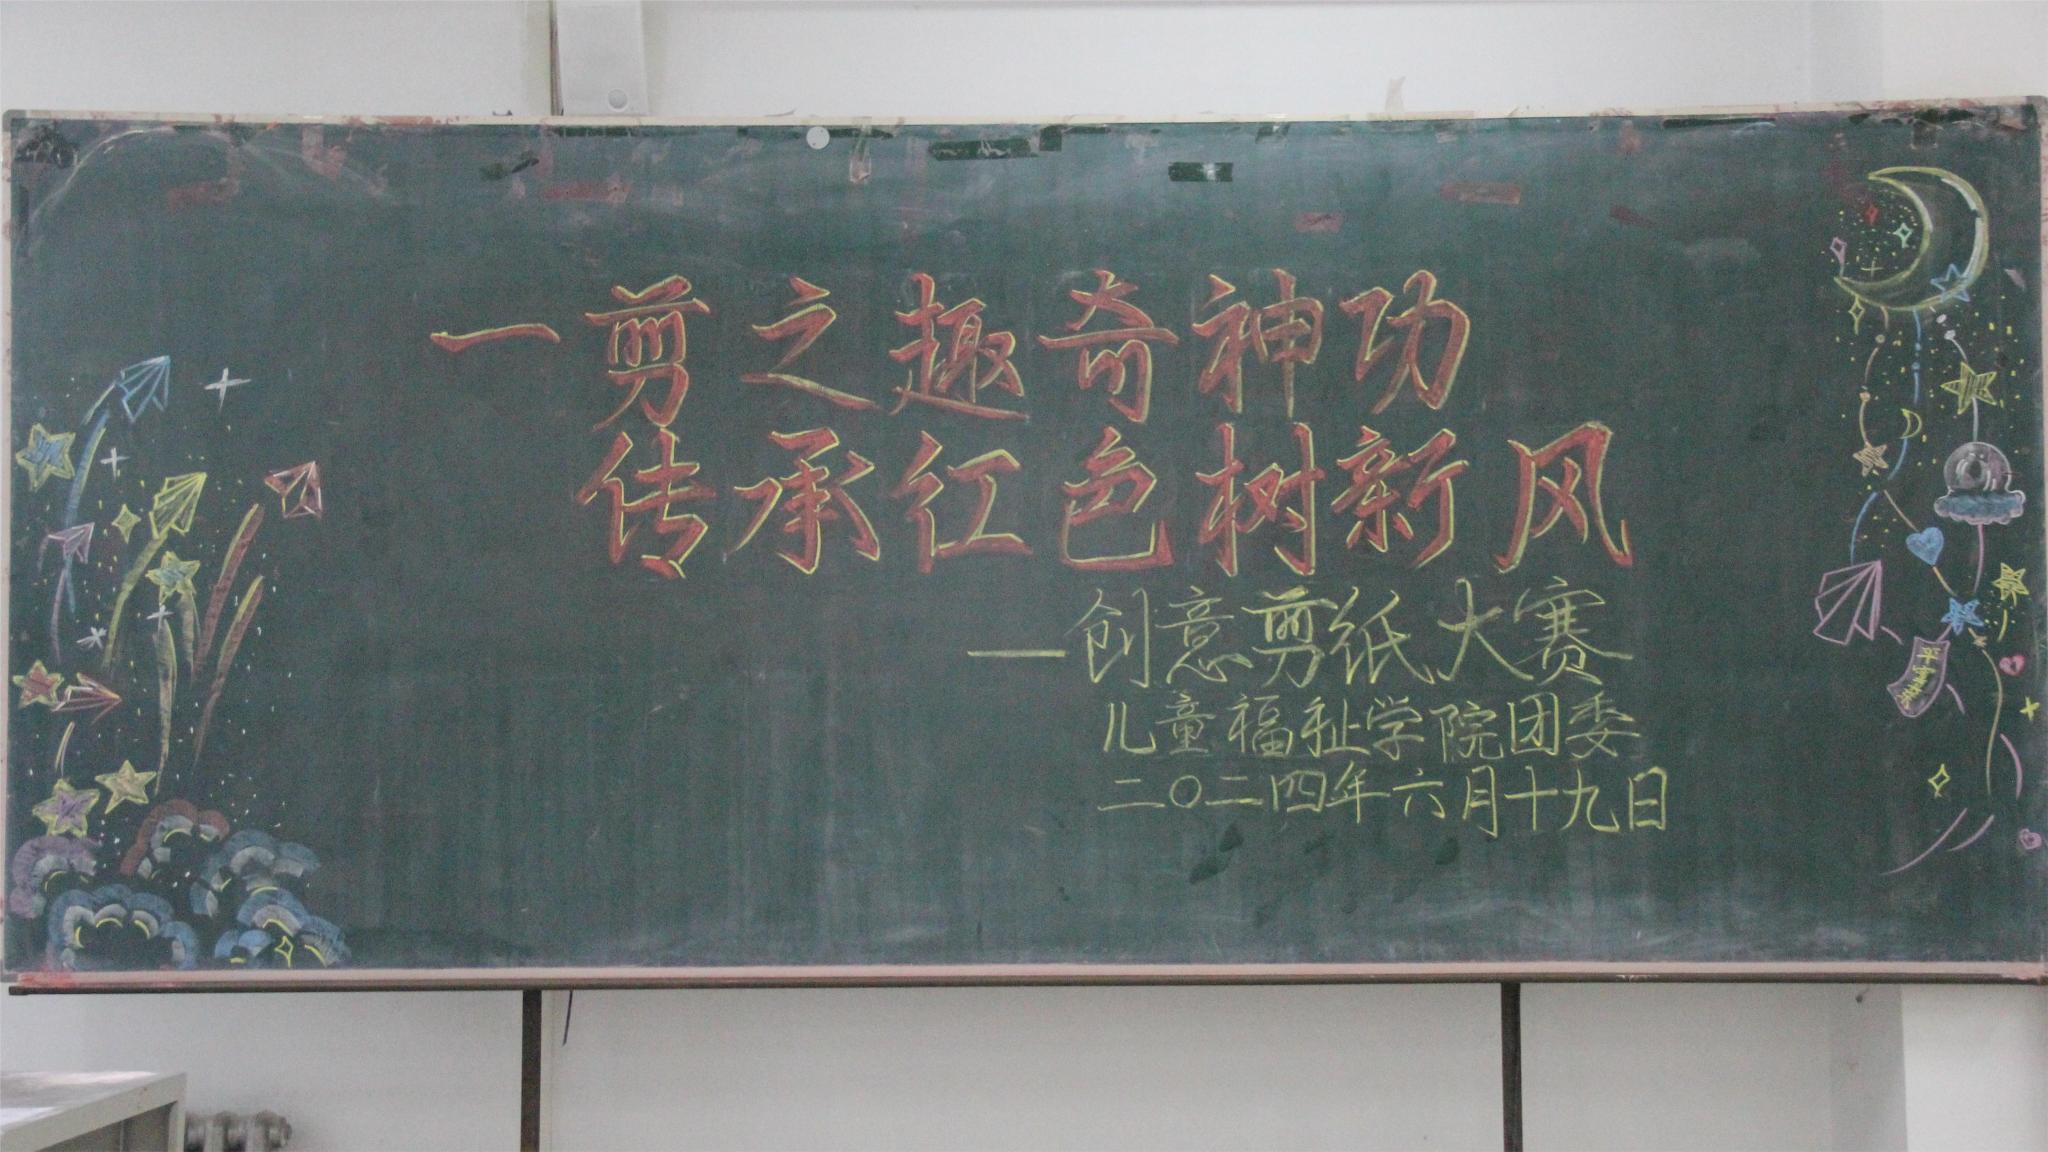 一剪之趣奇神功
传承红色树新风
—创意剪纸大赛
儿童福祉学院团委
二〇二四年六月十九日